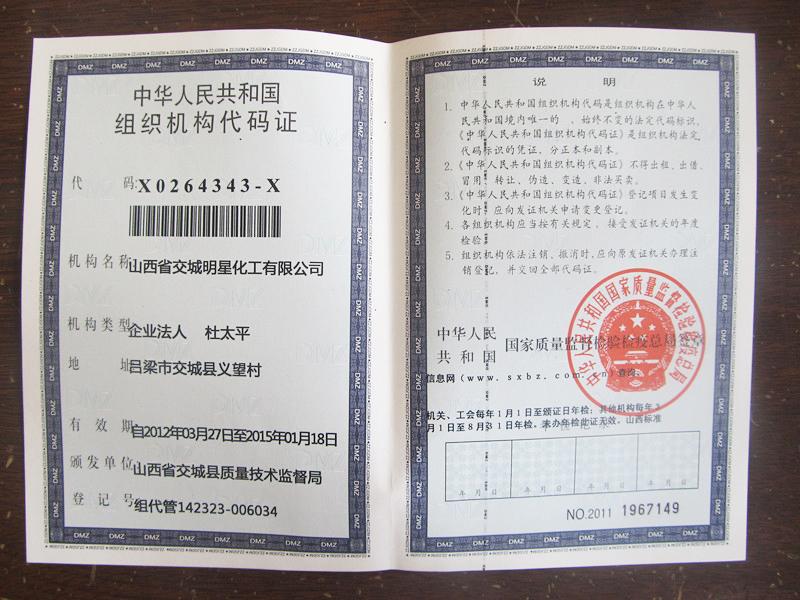 中华人民共和国
组织机构代码证
代 码:X0264343-X
机构名称 山西省交城明星化工有限公司
机构类型 企业法人 杜太平
地 址 吕梁市交城县义望村
有 效 期 自2012年03月27日至2015年01月18日
颁发单位 山西省交城县质量技术监督局
登 记 号 组代管142323-006034
说 明
1. 中华人民共和国组织机构代码是组织机构在中华人
民共和国境内唯一的、始终不变的法定代码标识,
《中华人民共和国组织机构代码证》是组织机构法定
代码标识的凭证,分正本和副本。
2.《中华人民共和国组织机构代码证》不得出租、出借、
冒用、转让、伪造、变造、非法买卖。
3.《中华人民共和国组织机构代码证》登记项目发生变
化时,应向发证机关申请变更登记。
4. 各组织机构应当按有关规定,接受发证机关的年度
检验。
5. 组织机构依法注销、撤消时,应向原发证机关办理注
销登记,并交回全部代码证。
中华人民
共和国 国家质量监督检验检疫总局签章
信息网(www.sxbz.com.cn)查询。
机关、工会每年1月1日至颁证日年检;其他机构每年3
月1日至8月31日年检。未办年检此证无效。山西标准
年 月 日 年 月 日 年 月 日 年 月 日
NO.2011 1967149
中华人民共和国国家质量监督检验检疫总局